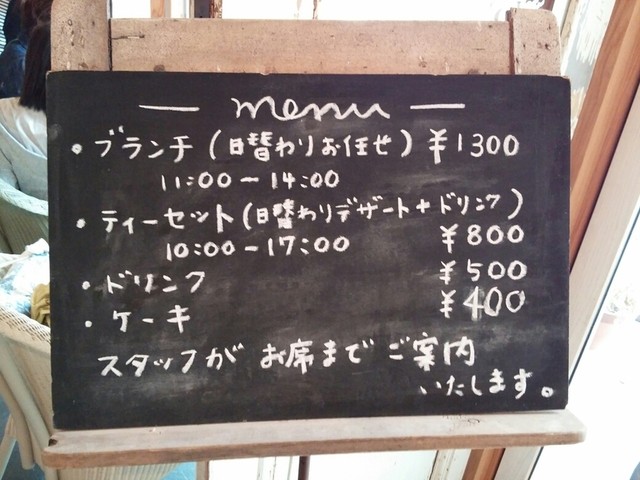 — menu —
・ブランチ(日替わりお任せ)¥1300
11:00-14:00
・ティーセット(日替わりデザート+ドリンク)
10:00-17:00 ¥800
・ドリンク ¥500
・ケーキ ¥400
スタッフが お席まで ご案内
いたします。